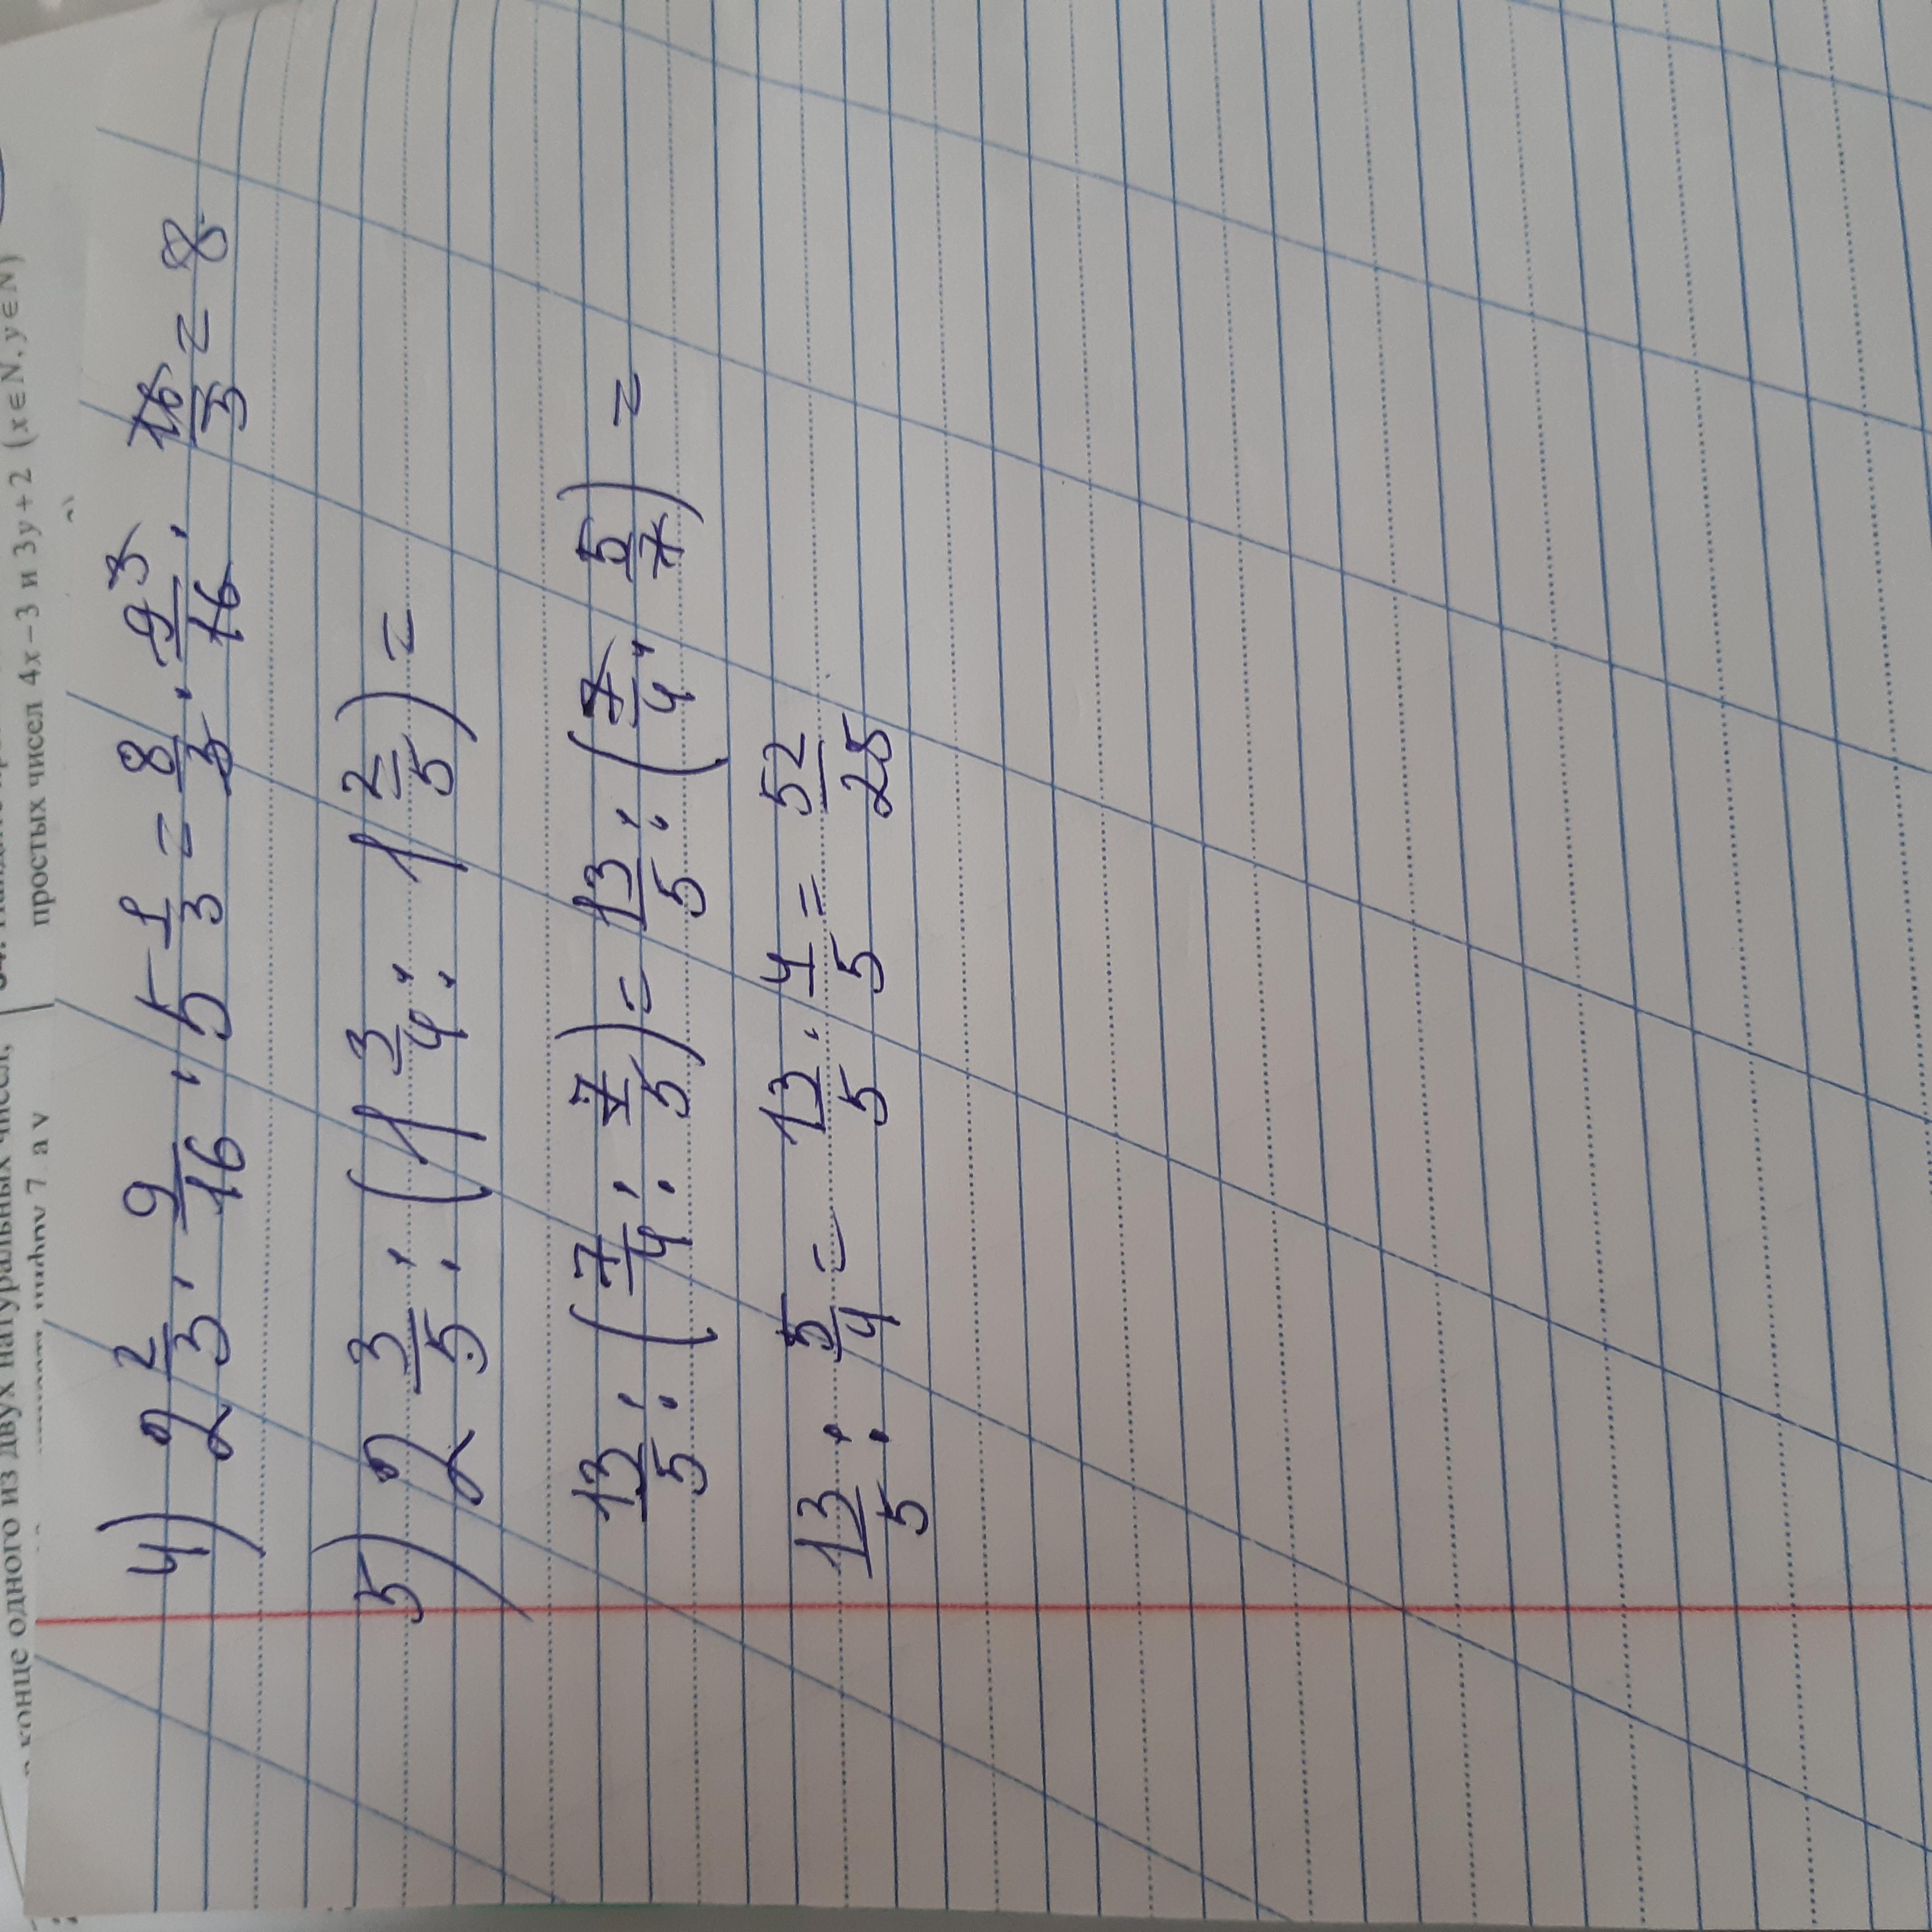 конце одного из двух натуральных чисел,
цифру 7, а у
простых чисел 4x – 3 и 3y + 2 (x ∈ N, y ∈ N)
4) 2 2/3 · 9/16 · 5 1/3 = 8/3 · 9 3/16 · 16/3 = 8
5) 2 3/5 : (1 3/4 : 1 2/5) =
13/5 : (7/4 : 7/5) = 13/5 : (7/4 · 5/7) =
13/5 : 5/4 = 13/5 · 4/5 = 52/25